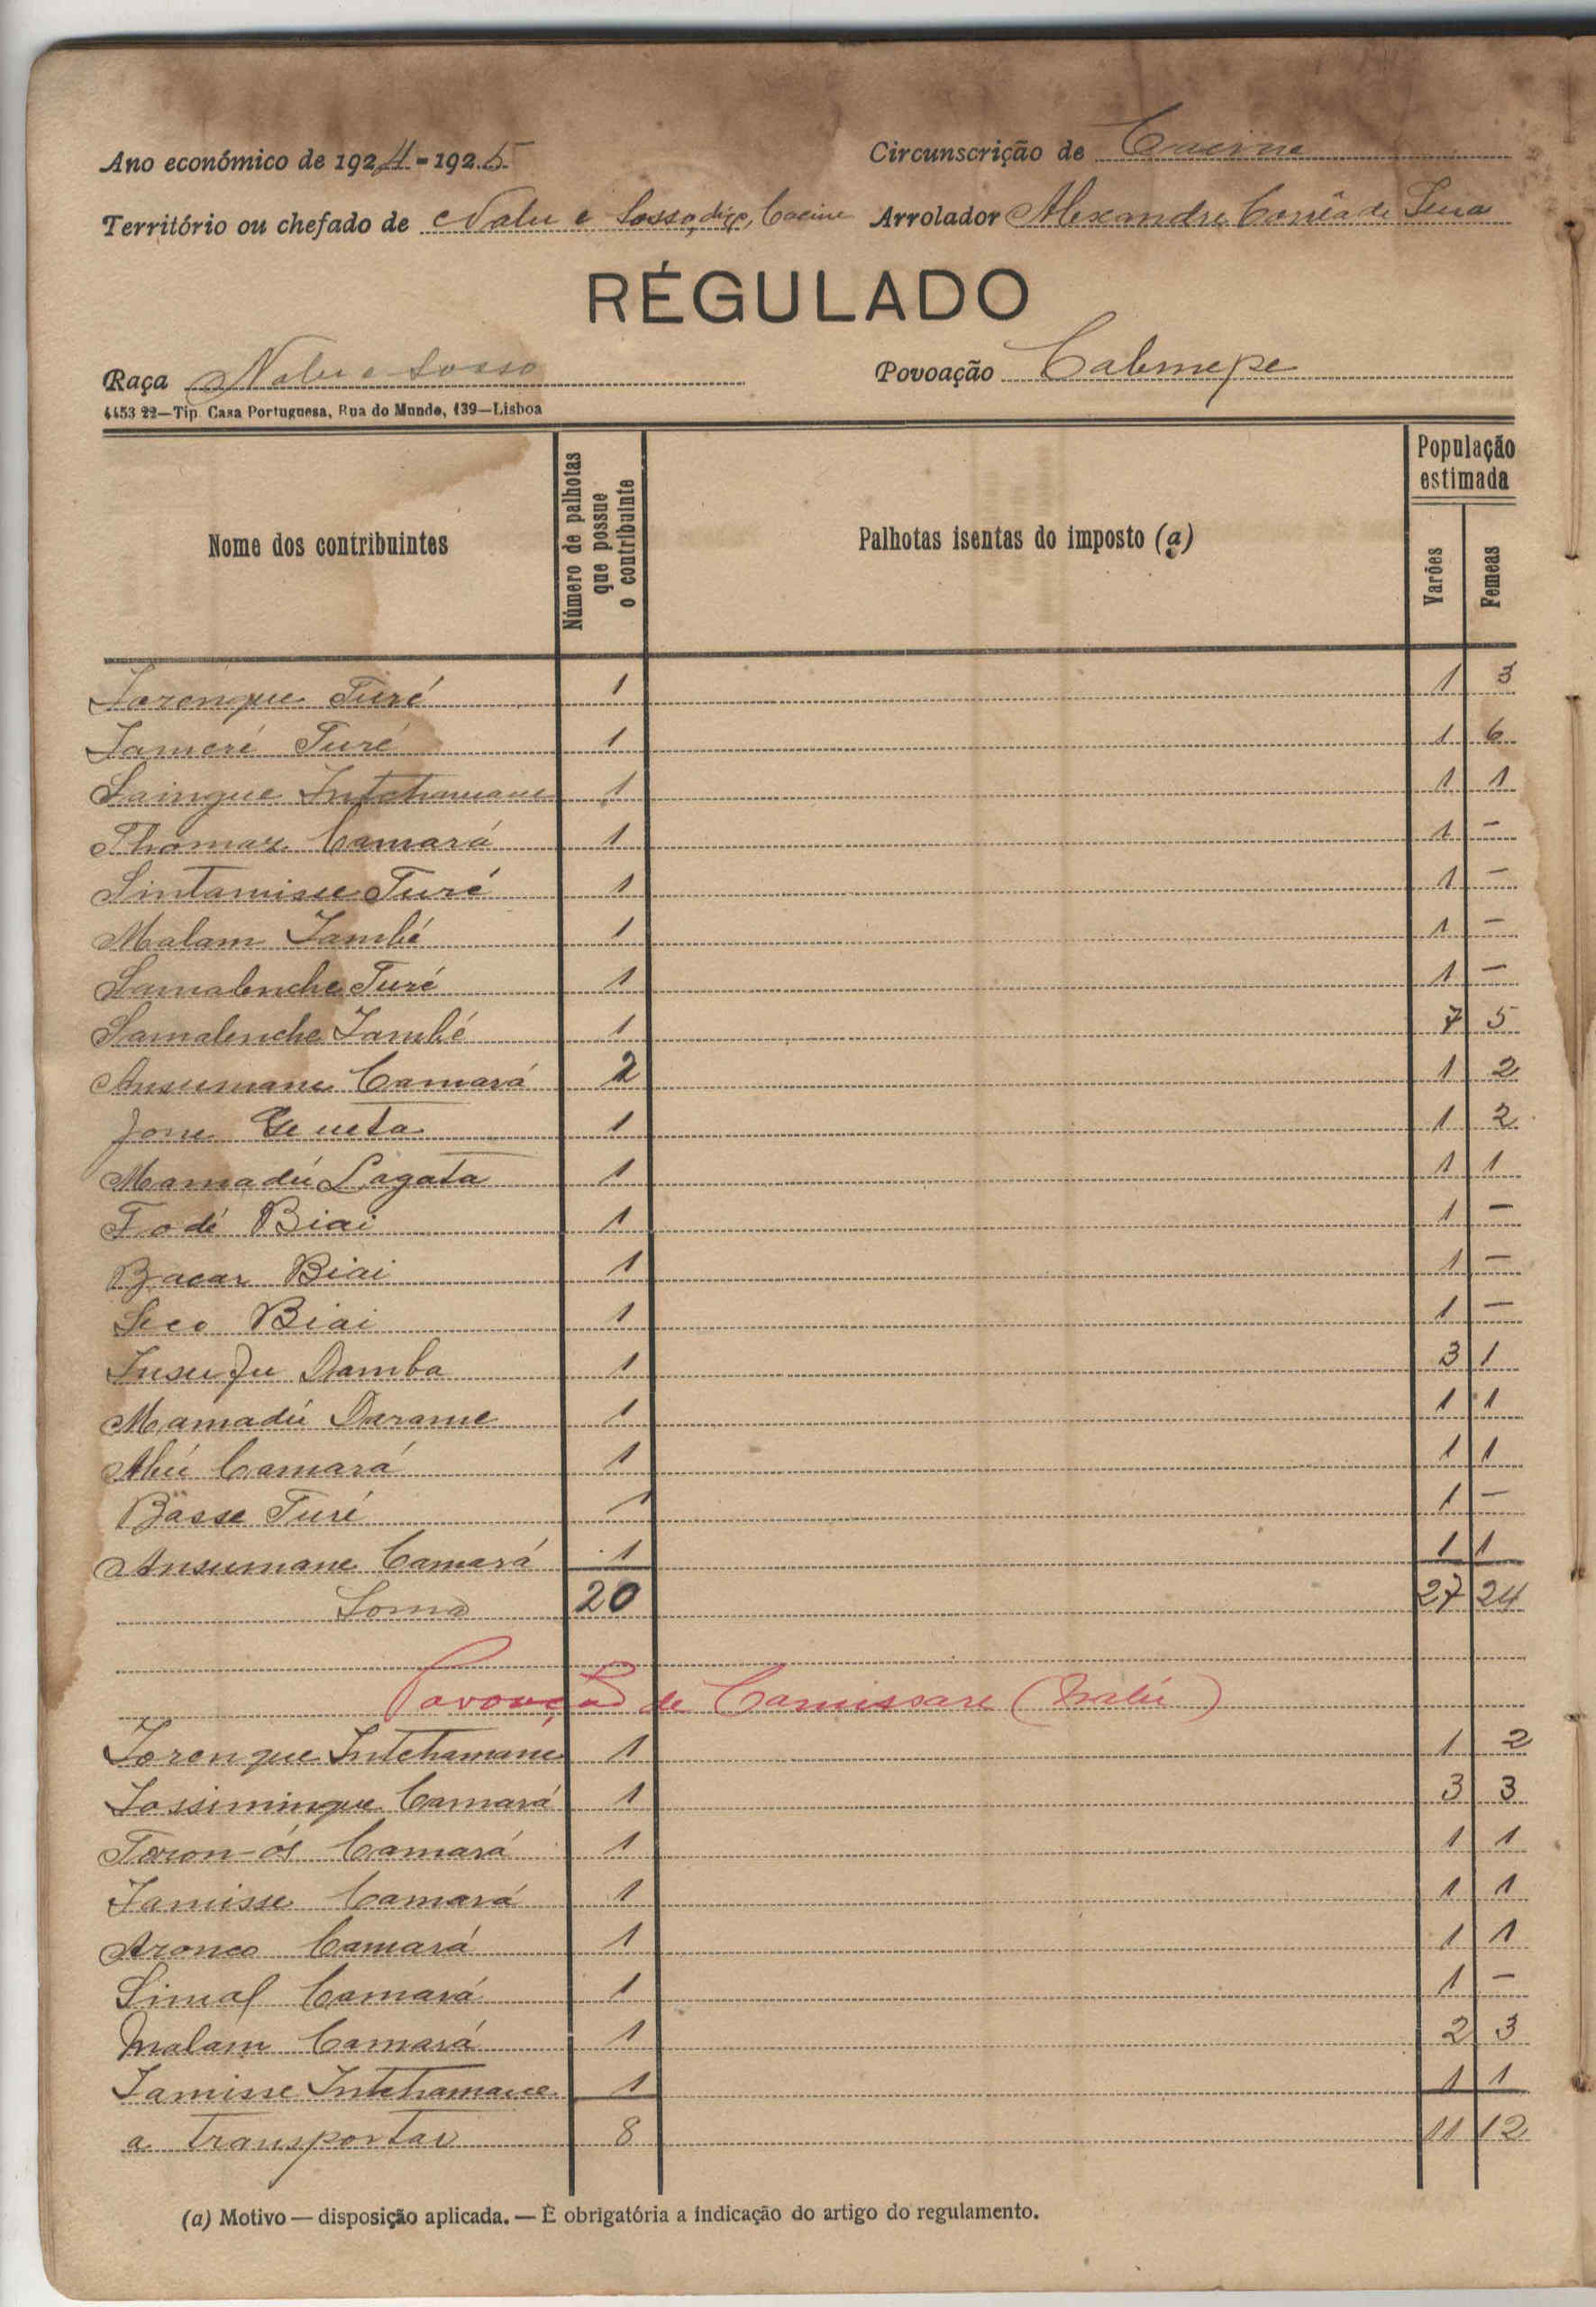 Ano económico de 1924-1925 Circunscrição de Cacine
Território ou chefado de Nalu e Sosso, digo, Cacine Arrolador Alexandre Corrêa de Sena
RÉGULADO
Raça Nalu e Sosso Povoação Calemepe
4453 22—Tip. Casa Portuguesa, Rua do Mundo, 139—Lisboa
Nome dos contribuintes Número de palhotas que possue o contribuinte Palhotas isentas do imposto (a) População estimada Varões Femeas
Turé 1 1 3
Turé 1 1 6
Saingue Intchamane 1 1 1
Thomaz Camará 1 1 -
Sintamisse Turé 1 1 -
Malam 1 1 -
Samalenche Turé 1 1 -
Samalenche 1 7 5
Ansumane Camará 2 1 2
1 1 2
Mamadú Lagata 1 1 1
Fodé Biai 1 1 -
Bacar Biai 1 1 -
Seco Biai 1 1 -
Damba 1 3 1
Mamadú Darame 1 1 1
Abú Camará 1 1 1
Basse Turé 1 1 -
Ansumane Camará 1 1 1
Soma 20 27 24
Povoação de Camissare (Nalú)
Intchamane 1 1 2
Camará 1 3 3
Camará 1 1 1
Camará 1 1 1
Aronco Camará 1 1 1
Simal Camará 1 1 -
Malam Camará 1 2 3
Intchamane 1 1 1
a transportar 8 11 12
(a) Motivo — disposição aplicada. — È obrigatória a indicação do artigo do regulamento.